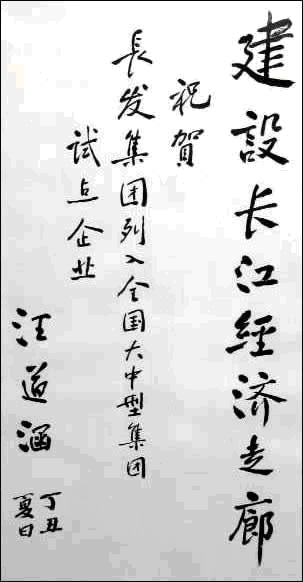 建設长江經济走廊
祝賀
長发集团列入全国大中型集团
试点企业
汪道涵
丁丑
夏日